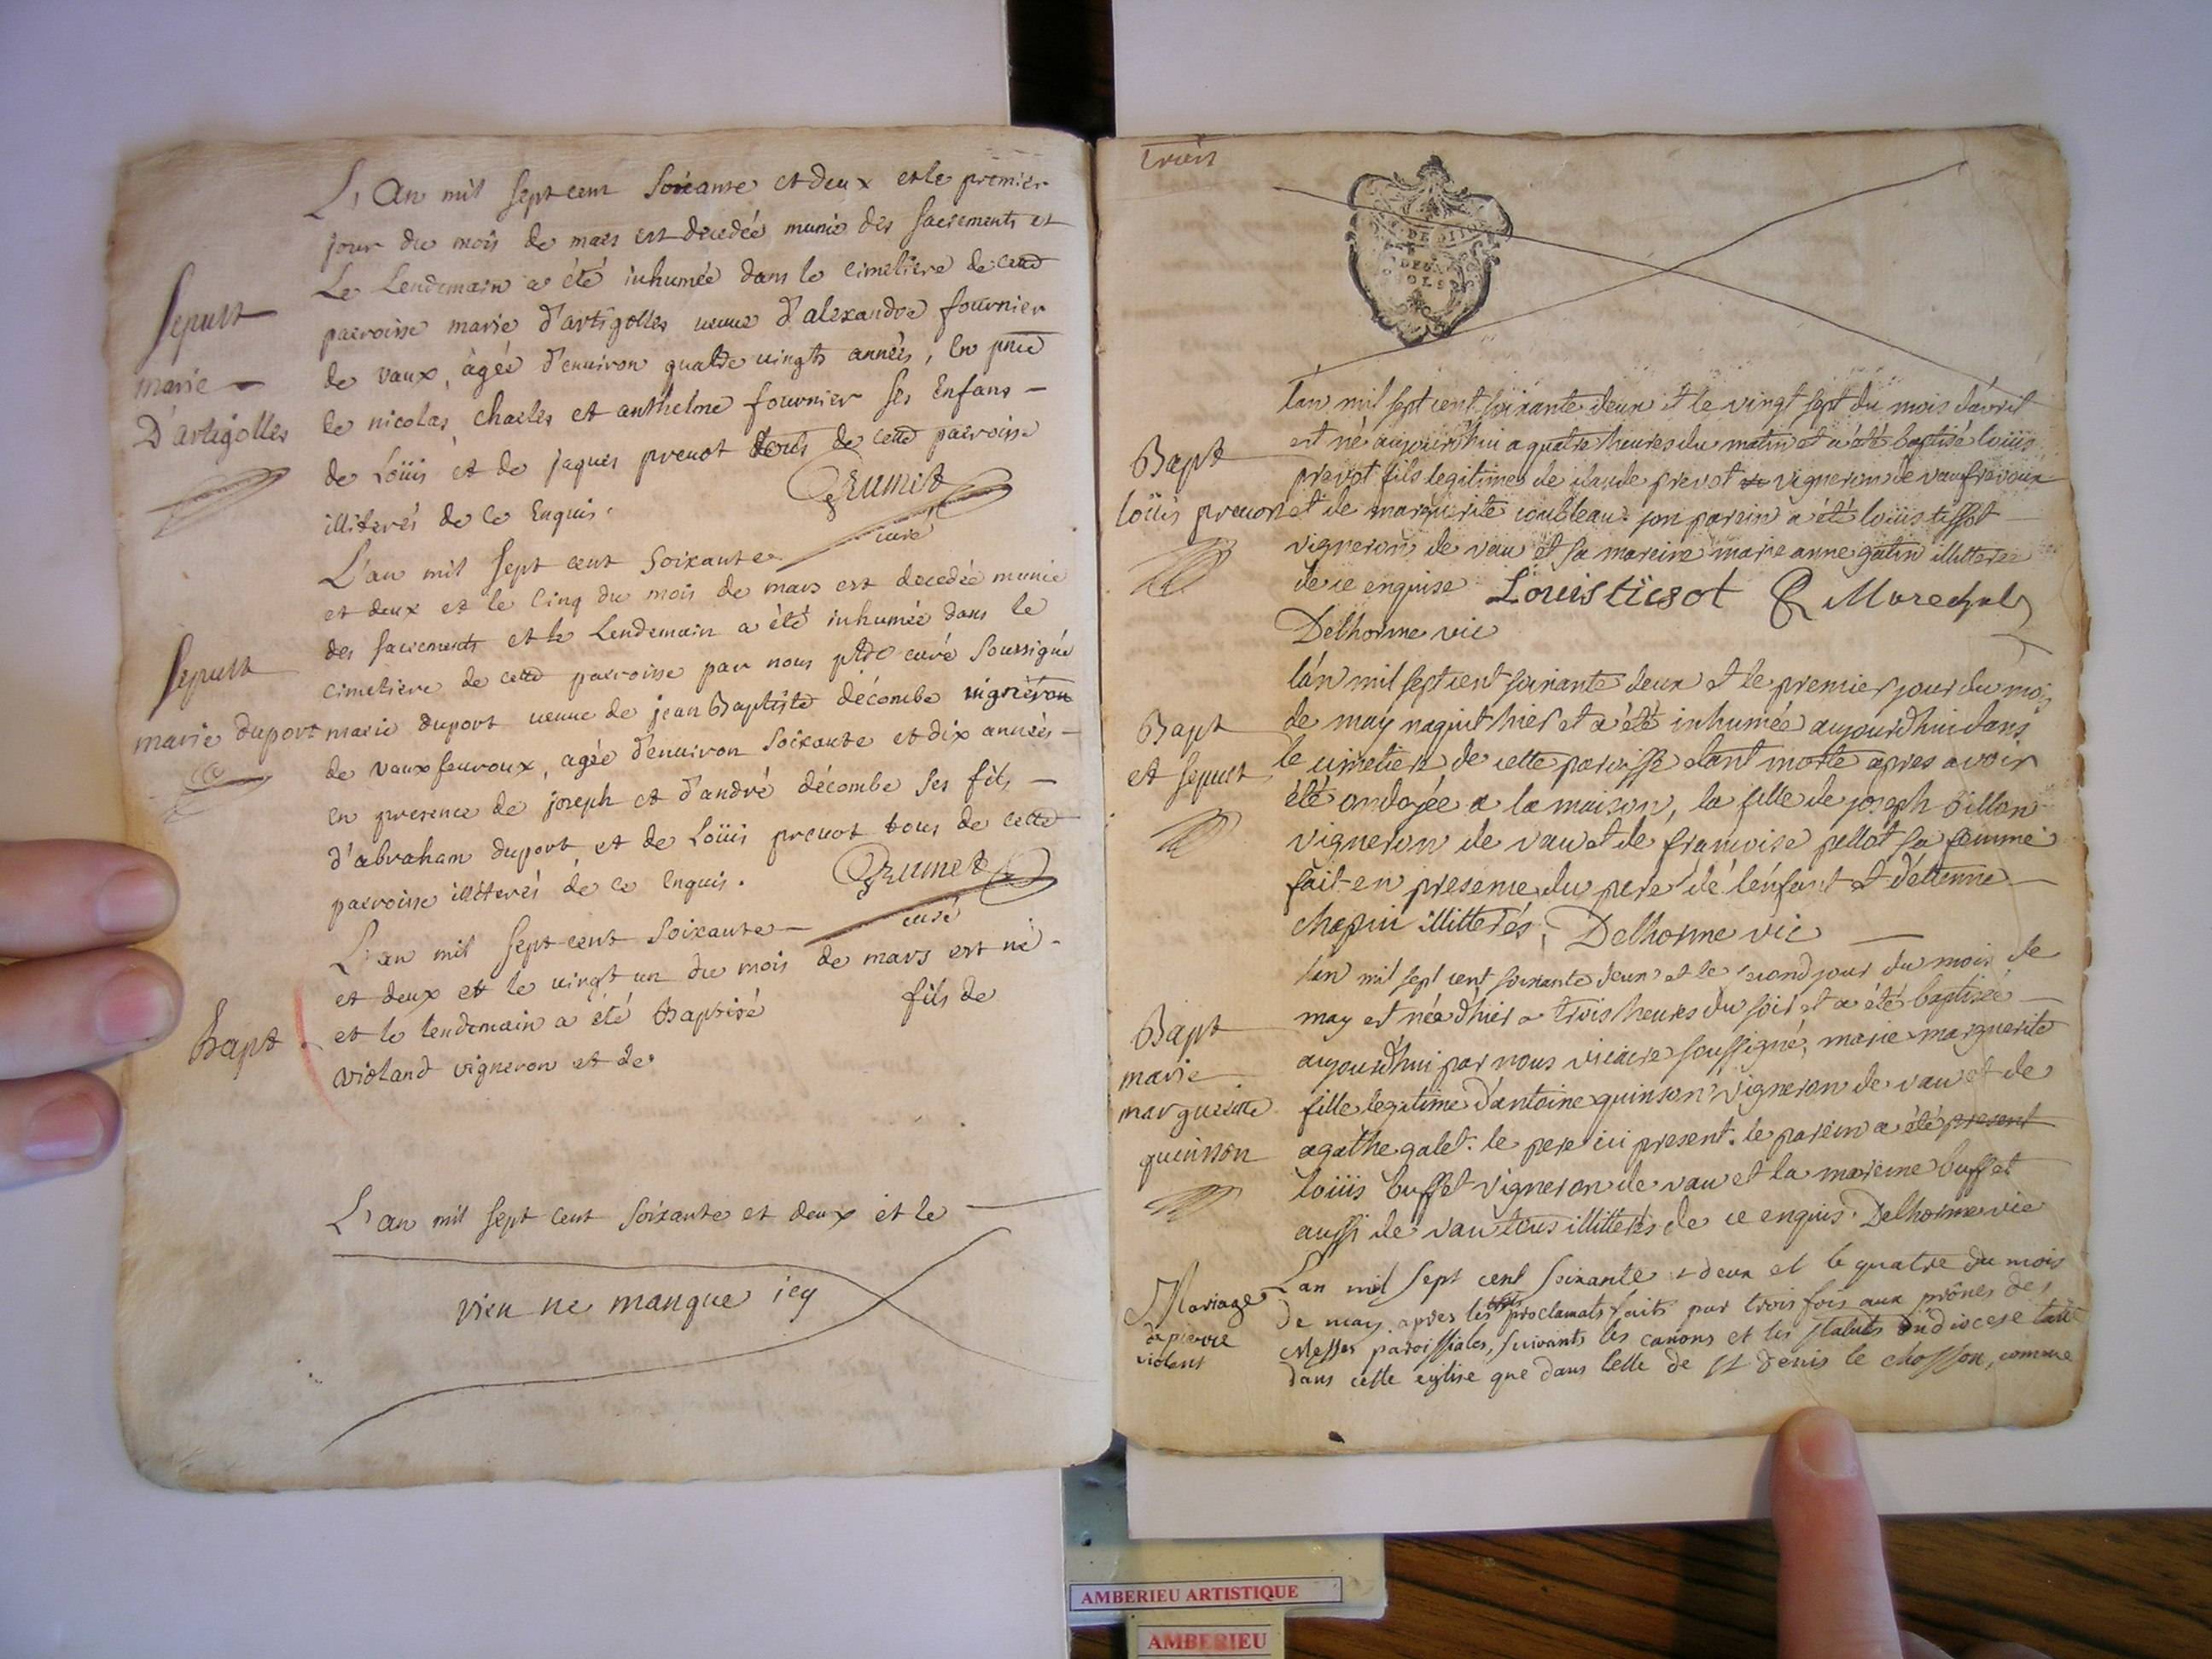 L'An mil sept cent soixante et deux et le premier
jour du mois de mars est decedée munie des sacrements et
Le Lendemain a été inhumée dans le cimetiere de cette
paroisse marie d'artigolles veuve d'alexandre fournier
de vaux, âgée d'environ quatre vingts années, en pnce
de nicolas, charles et anthelme fournier ses Enfans –
de Loüis et de jaques prevot tous de cette paroisse
illiterés de ce Enquis.
curé
Sepult
marie –
D'artigolles
L'an mil sept cent soixante
et deux et le Cinq du mois de mars est decedée munie
des sacrements et le Lendemain a été inhumée dans le
cimetiere de cette paroisse par nous curé soussigné
marie duport veuve de jean Baptiste décombe vigneron
de vaux fevroux, agée d'environ soixante et dix années –
en presence de joseph et d'andré décombe ses fils –
d'abraham duport, et de Loüis prevot tous de cette
paroisse illiterés de ce Enquis.
curé
Sepult
marie duport
L'an mil sept cent soixante –
et deux et le vingt un du mois de mars est né –
et le lendemain a été Baptisé fils de
violand vigneron et de
Bapt
L'an mil sept cent soixante et deux et le
rien ne manque icy
trois
DEUX
SOLS
l'an mil sept cent soixante deux et le vingt sept du mois d'avril
est né aujourd'hui a quatre heures du matin et a été baptisé loüis
prevot fils legitime de claude prevot vigneron de vaufevroux
et de marguerite coubleau. son parein a été loüis tissot
vigneron de vau et sa mareine marie anne gatin illitterée
de ce enquise. Louis tissot Marechal
Delhorme vic
Bapt
loüis prevot
l'an mil sept cent soixante deux et le premier jour du mois
de may naquit hier et a été inhumée aujourd'hui dans
le cimetiere de cette paroisse etant morte apres avoir
été ondoyée a la maison, la fille de joseph billon
vigneron de vau et de françoise pellot sa femme
fait en presence du pere de l'enfant et d'étienne –
chapui illitterés. Delhorme vic
Bapt
et sepult
l'an mil sept cent soixante deux et le second jour du mois de
may est née d'hier a trois heures du soir et a été baptisée –
aujourd'hui par nous vicaire soussigné, marie marguerite
fille legitime d'antoine quinson vigneron de vau et de
agathe galet. le pere ici present. le parein a été present
loüis buffet vigneron de vau et la mareine buffet
aussi de vau tous illitterés de ce enquis. Delhorme vic
Bapt
marie
marguerite
quinson
L'an mil sept cent soixante et deux et le quatre du mois
de may apres les trois proclamats faits par trois fois aux prônes des
Messes paroissiales, suivants les canons et les statuts du diocese tant
dans cette eglise que dans celle de St denis le chosson, comme
Mariage
de pierre
violant
AMBERIEU ARTISTIQUE
AMBERIEU